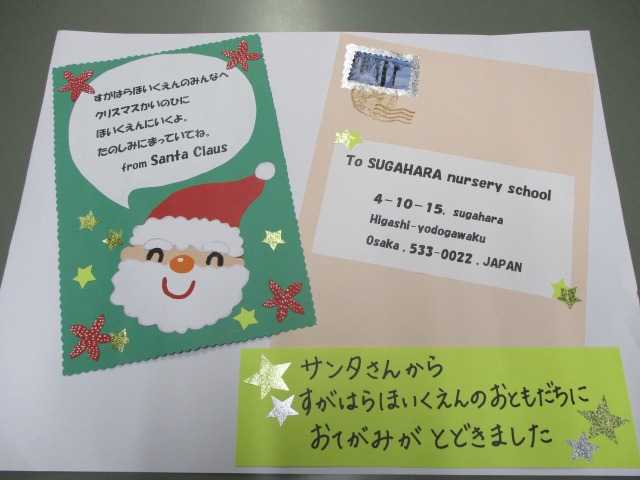 すがはらほいくえんのみんなへ
クリスマスかいのひに
ほいくえんにいくよ。
たのしみにまっていてね。
from Santa Claus
To SUGAHARA nursery school
4-10-15, sugahara
Higashi-yodogawaku
Osaka, 533-0022, JAPAN
サンタさんから
すがはらほいくえんのおともだちに
おてがみが とどきました